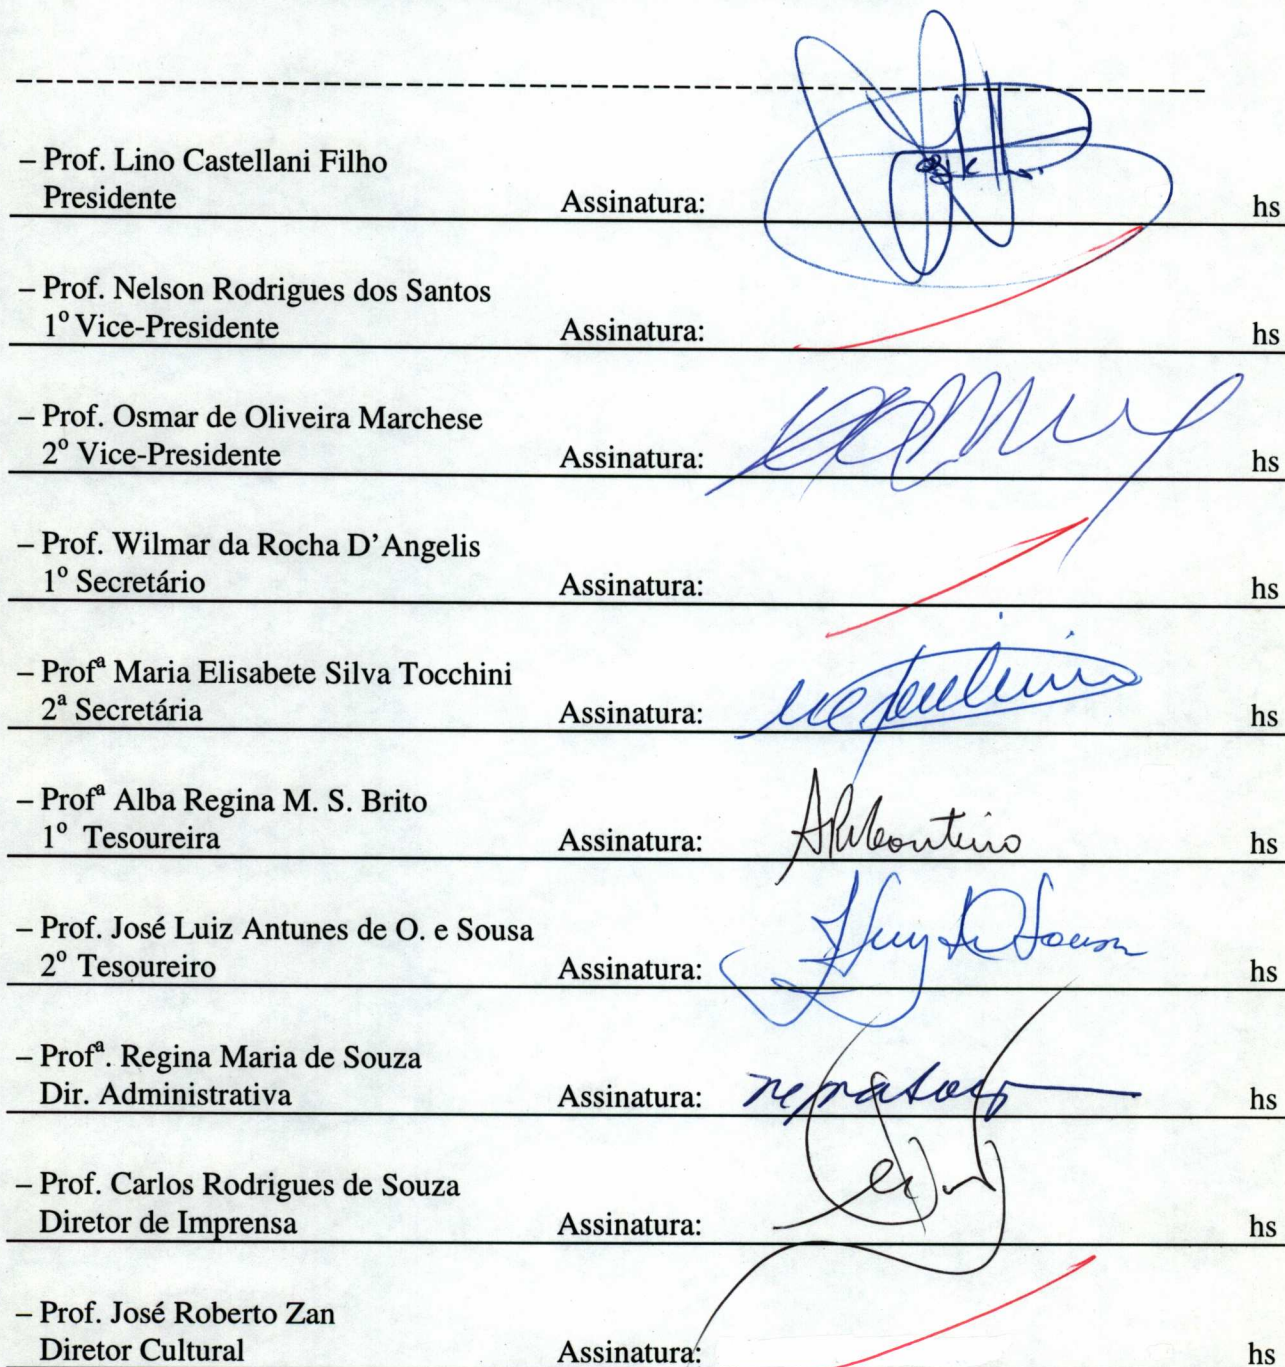 – Prof. Lino Castellani Filho
Presidente Assinatura: hs
– Prof. Nelson Rodrigues dos Santos
1º Vice-Presidente Assinatura: hs
– Prof. Osmar de Oliveira Marchese
2º Vice-Presidente Assinatura: hs
– Prof. Wilmar da Rocha D'Angelis
1º Secretário Assinatura: hs
– Profª Maria Elisabete Silva Tocchini
2ª Secretária Assinatura: hs
– Profª Alba Regina M. S. Brito
1º Tesoureira Assinatura: hs
– Prof. José Luiz Antunes de O. e Sousa
2º Tesoureiro Assinatura: hs
– Profª. Regina Maria de Souza
Dir. Administrativa Assinatura: hs
– Prof. Carlos Rodrigues de Souza
Diretor de Imprensa Assinatura: hs
– Prof. José Roberto Zan
Diretor Cultural Assinatura: hs